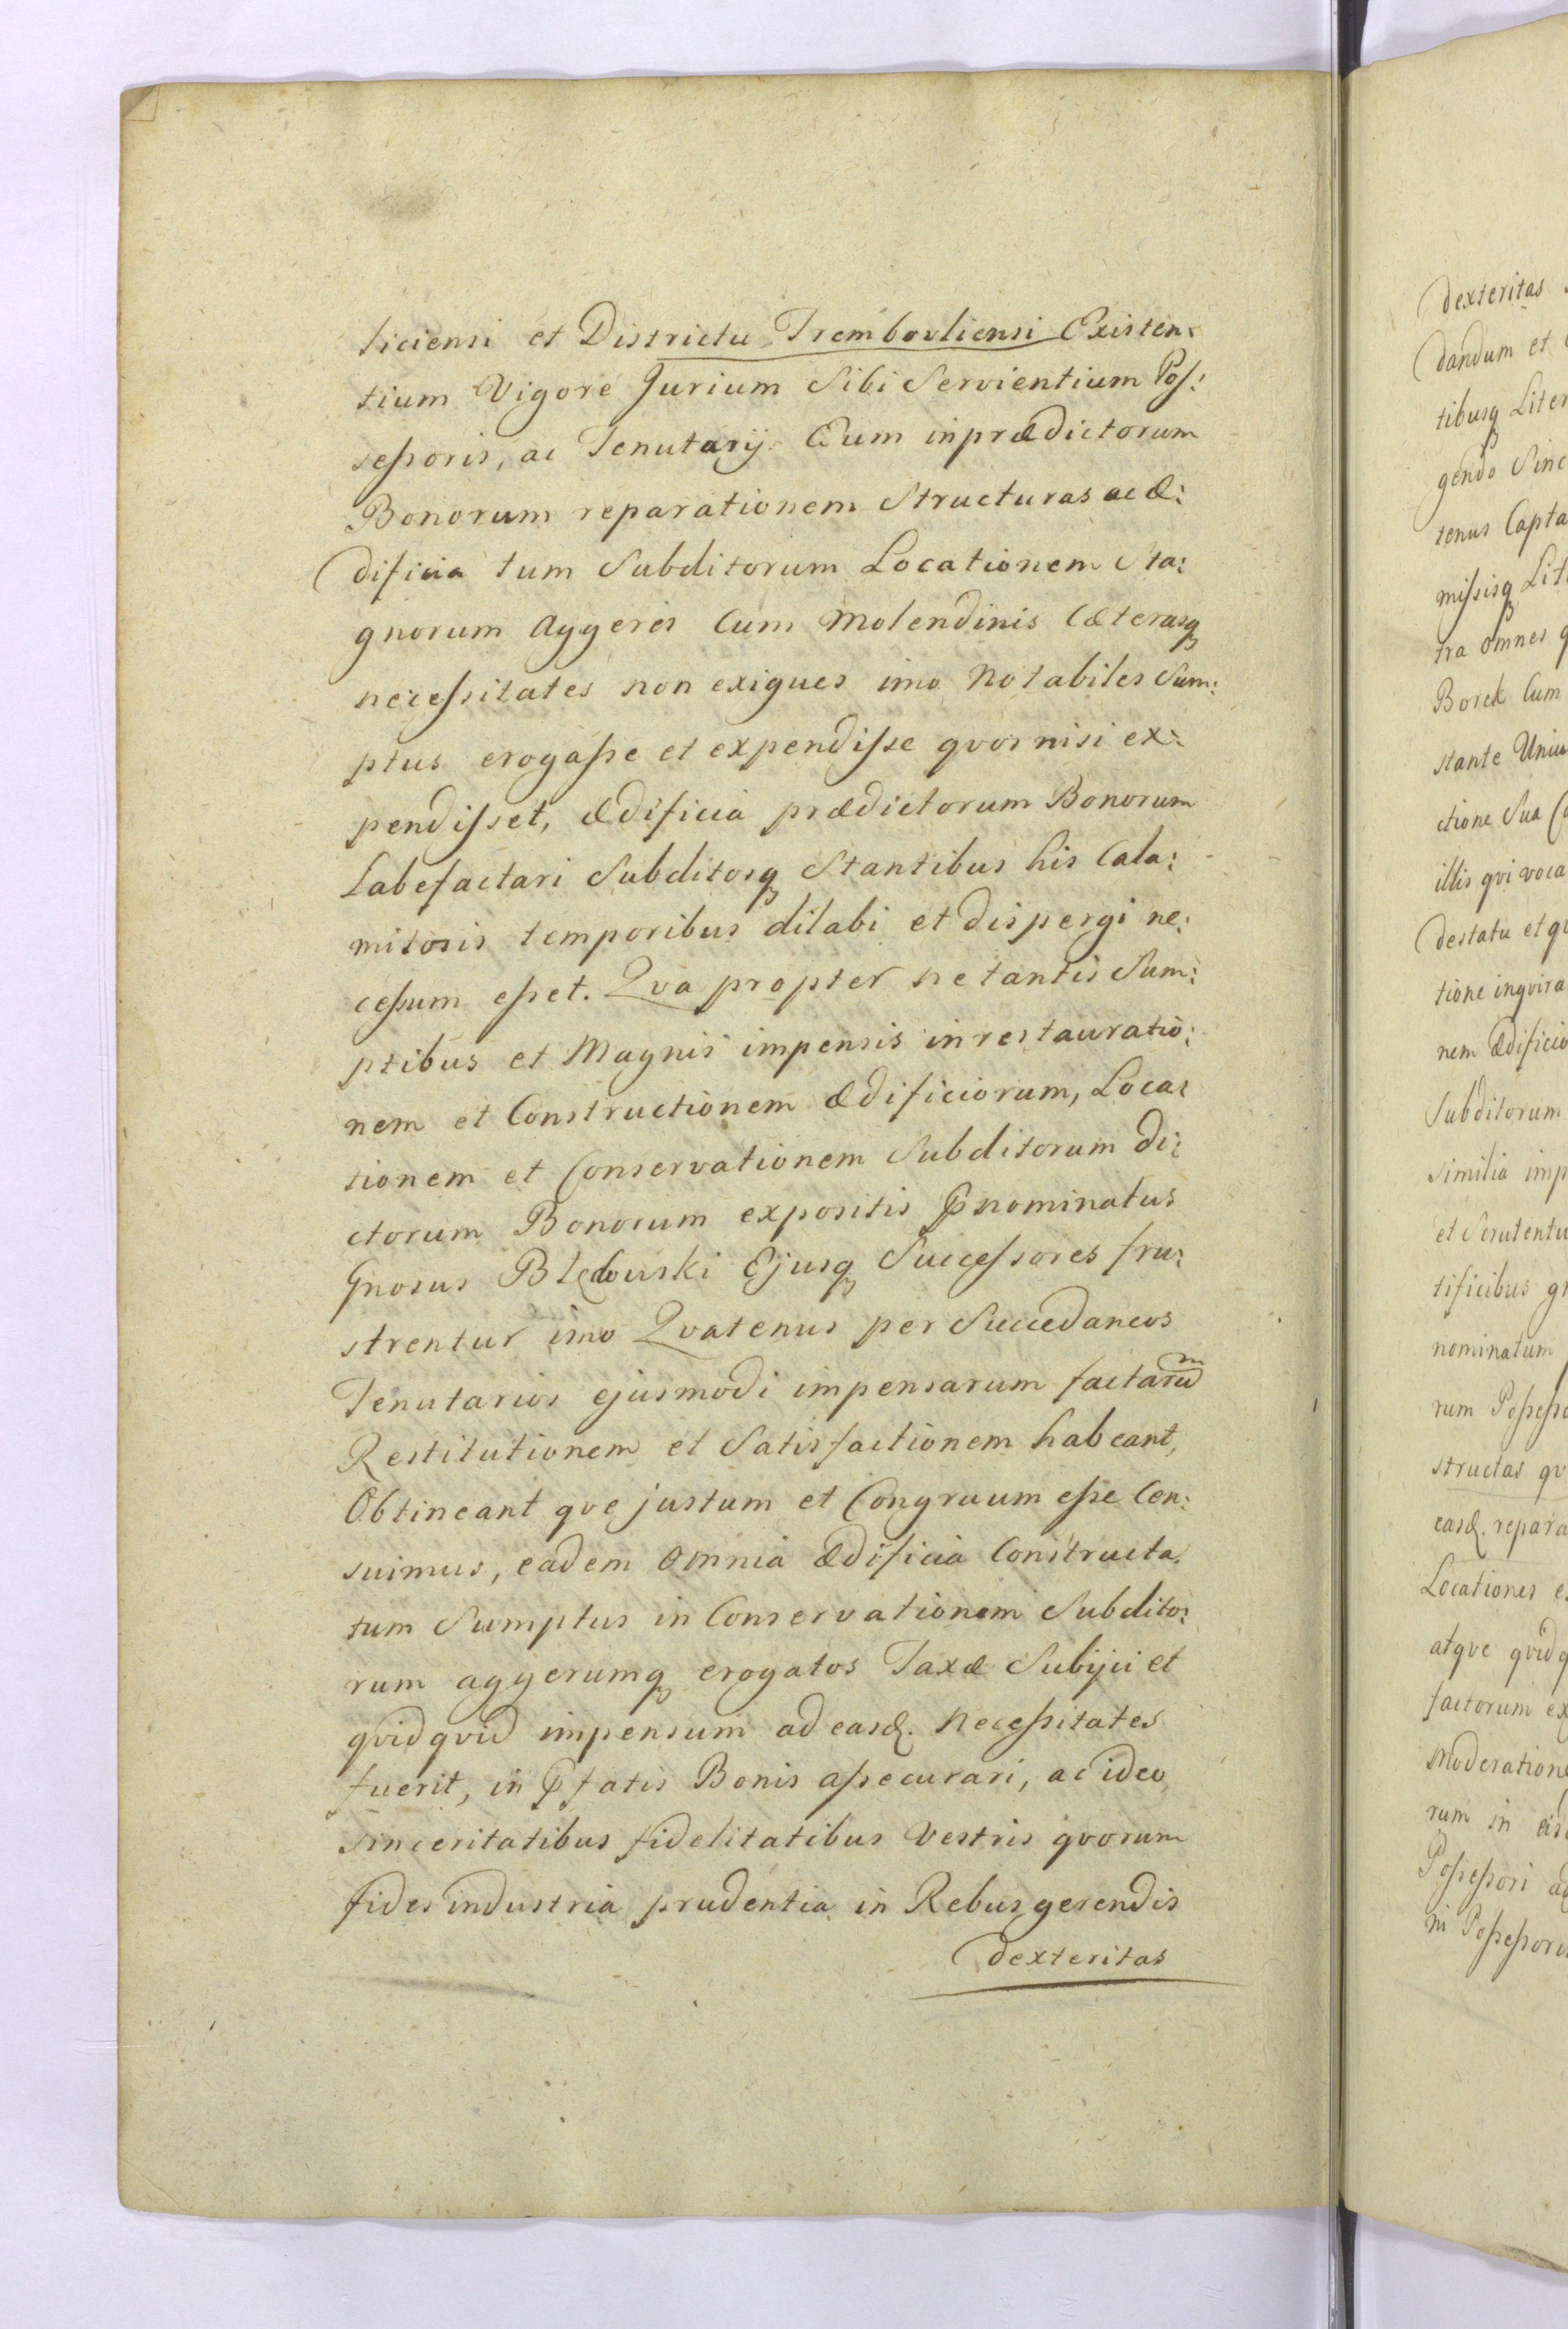 ticiensi et Districtu Trembovliensi Existen:
tium Vigore Jurium Sibi Servientium Pos:
sessoris, ac Tenutarij Eum in prædictorum
Bonorum reparationem Structuras ac æ:
dificia tum Subditorum Locationem Sta:
gnorum Aggeres Cum Molendinis Cæterasq
necessitates non exigues imo Notabiles Sum:
ptus erogasse et expendisse qvos nisi ex:
pendisset, ædificia prædictorum Bonorum
Labefactari Subditosq Stantibus his Cala:
mitosis temporibus dilabi et dispergi ne:
cessum esset. Qva propter ne tantis Sum:
ptibus et Magnis impensis in restauratio:
nem et Constructionem ædificiorum, Loca:
tionem et Conservationem Subditorum di:
ctorum Bonorum expositis Pnominatus
Gnosus Błędowski Ejusq Successores fru:
strentur imo Qvatenus per Succedaneos
Tenutarios ejusmodi impensarum factarum
Restitutionem et Satisfactionem habeant,
Obtineant qve justum et Congruum esse Cen:
suimus, eadem omnia ædificia Constructa
tum Sumptus in Conservationem Subdito:
rum aggerumq erogatos Taxæ Subijci et
qvidqvid impensum ad easd. Necessitates
fuerit, in Pfatis Bonis assecurari, ac ideo
sinceritatibus fidelitatibus Vestris qvorum
fides industria prudentia in Rebus gerendis
dexteritas
dexteritas
dandum et
tibusq Liter
gendo Sinc
tenus Capta
missisq Lit
tra omnes q
Borek Cum
stante Univ
ctione Sua
illis qvi voca
destatu et qv
tione inqvira
nem ædificio
Subditorum
similia imp
et Scrutentu
tificibus gn
nominatum
rum Possesso
structas qv
easd. repara
Locationes e
atqve qvidq
factorum ex
Moderatione
rum in eis
Possessori ad
ni Possessoris